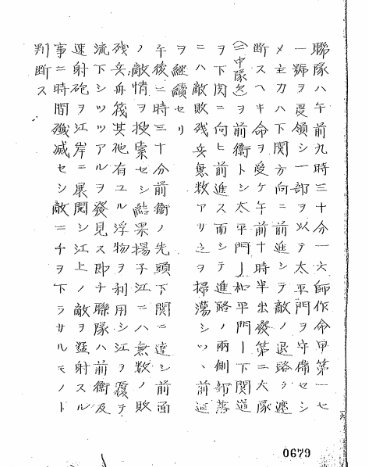 聯隊ハ午前九時三十分一六師作命甲第一七
一號ヲ受領シ一部ヲ以テ太平門ヲ守備セシ
メ主力ハ下関方向ニ前進シテ敵ノ退路ヲ遮
断スヘキ命ヲ受ケ午前十時半出發第二大隊
(二中隊欠)ヲ前衛トシ太平門―和平門―下関道
ヲ下関ニ向ヒ前進ス而シテ進路ノ両側部落
ニハ敵敗残兵無数アリ之ヲ掃蕩シツヽ前進
ヲ継續セリ
午後一時三十分前衛ノ先頭下関ニ達シ前面
ノ敵情ヲ搜索セシ結果揚子江ニハ無数ノ敗
残兵舟筏其他有ユル浮物ヲ利用シ江ヲ覆テ
流下シツヽアルヲ發見ス即チ聯隊ハ前衛及
速射砲ヲ江岸ニ展開シ江上ノ敵ヲ猛射スル
事二時間殲滅セシ敵一万五千ヲ下ラサルモノト
判断ス
0679